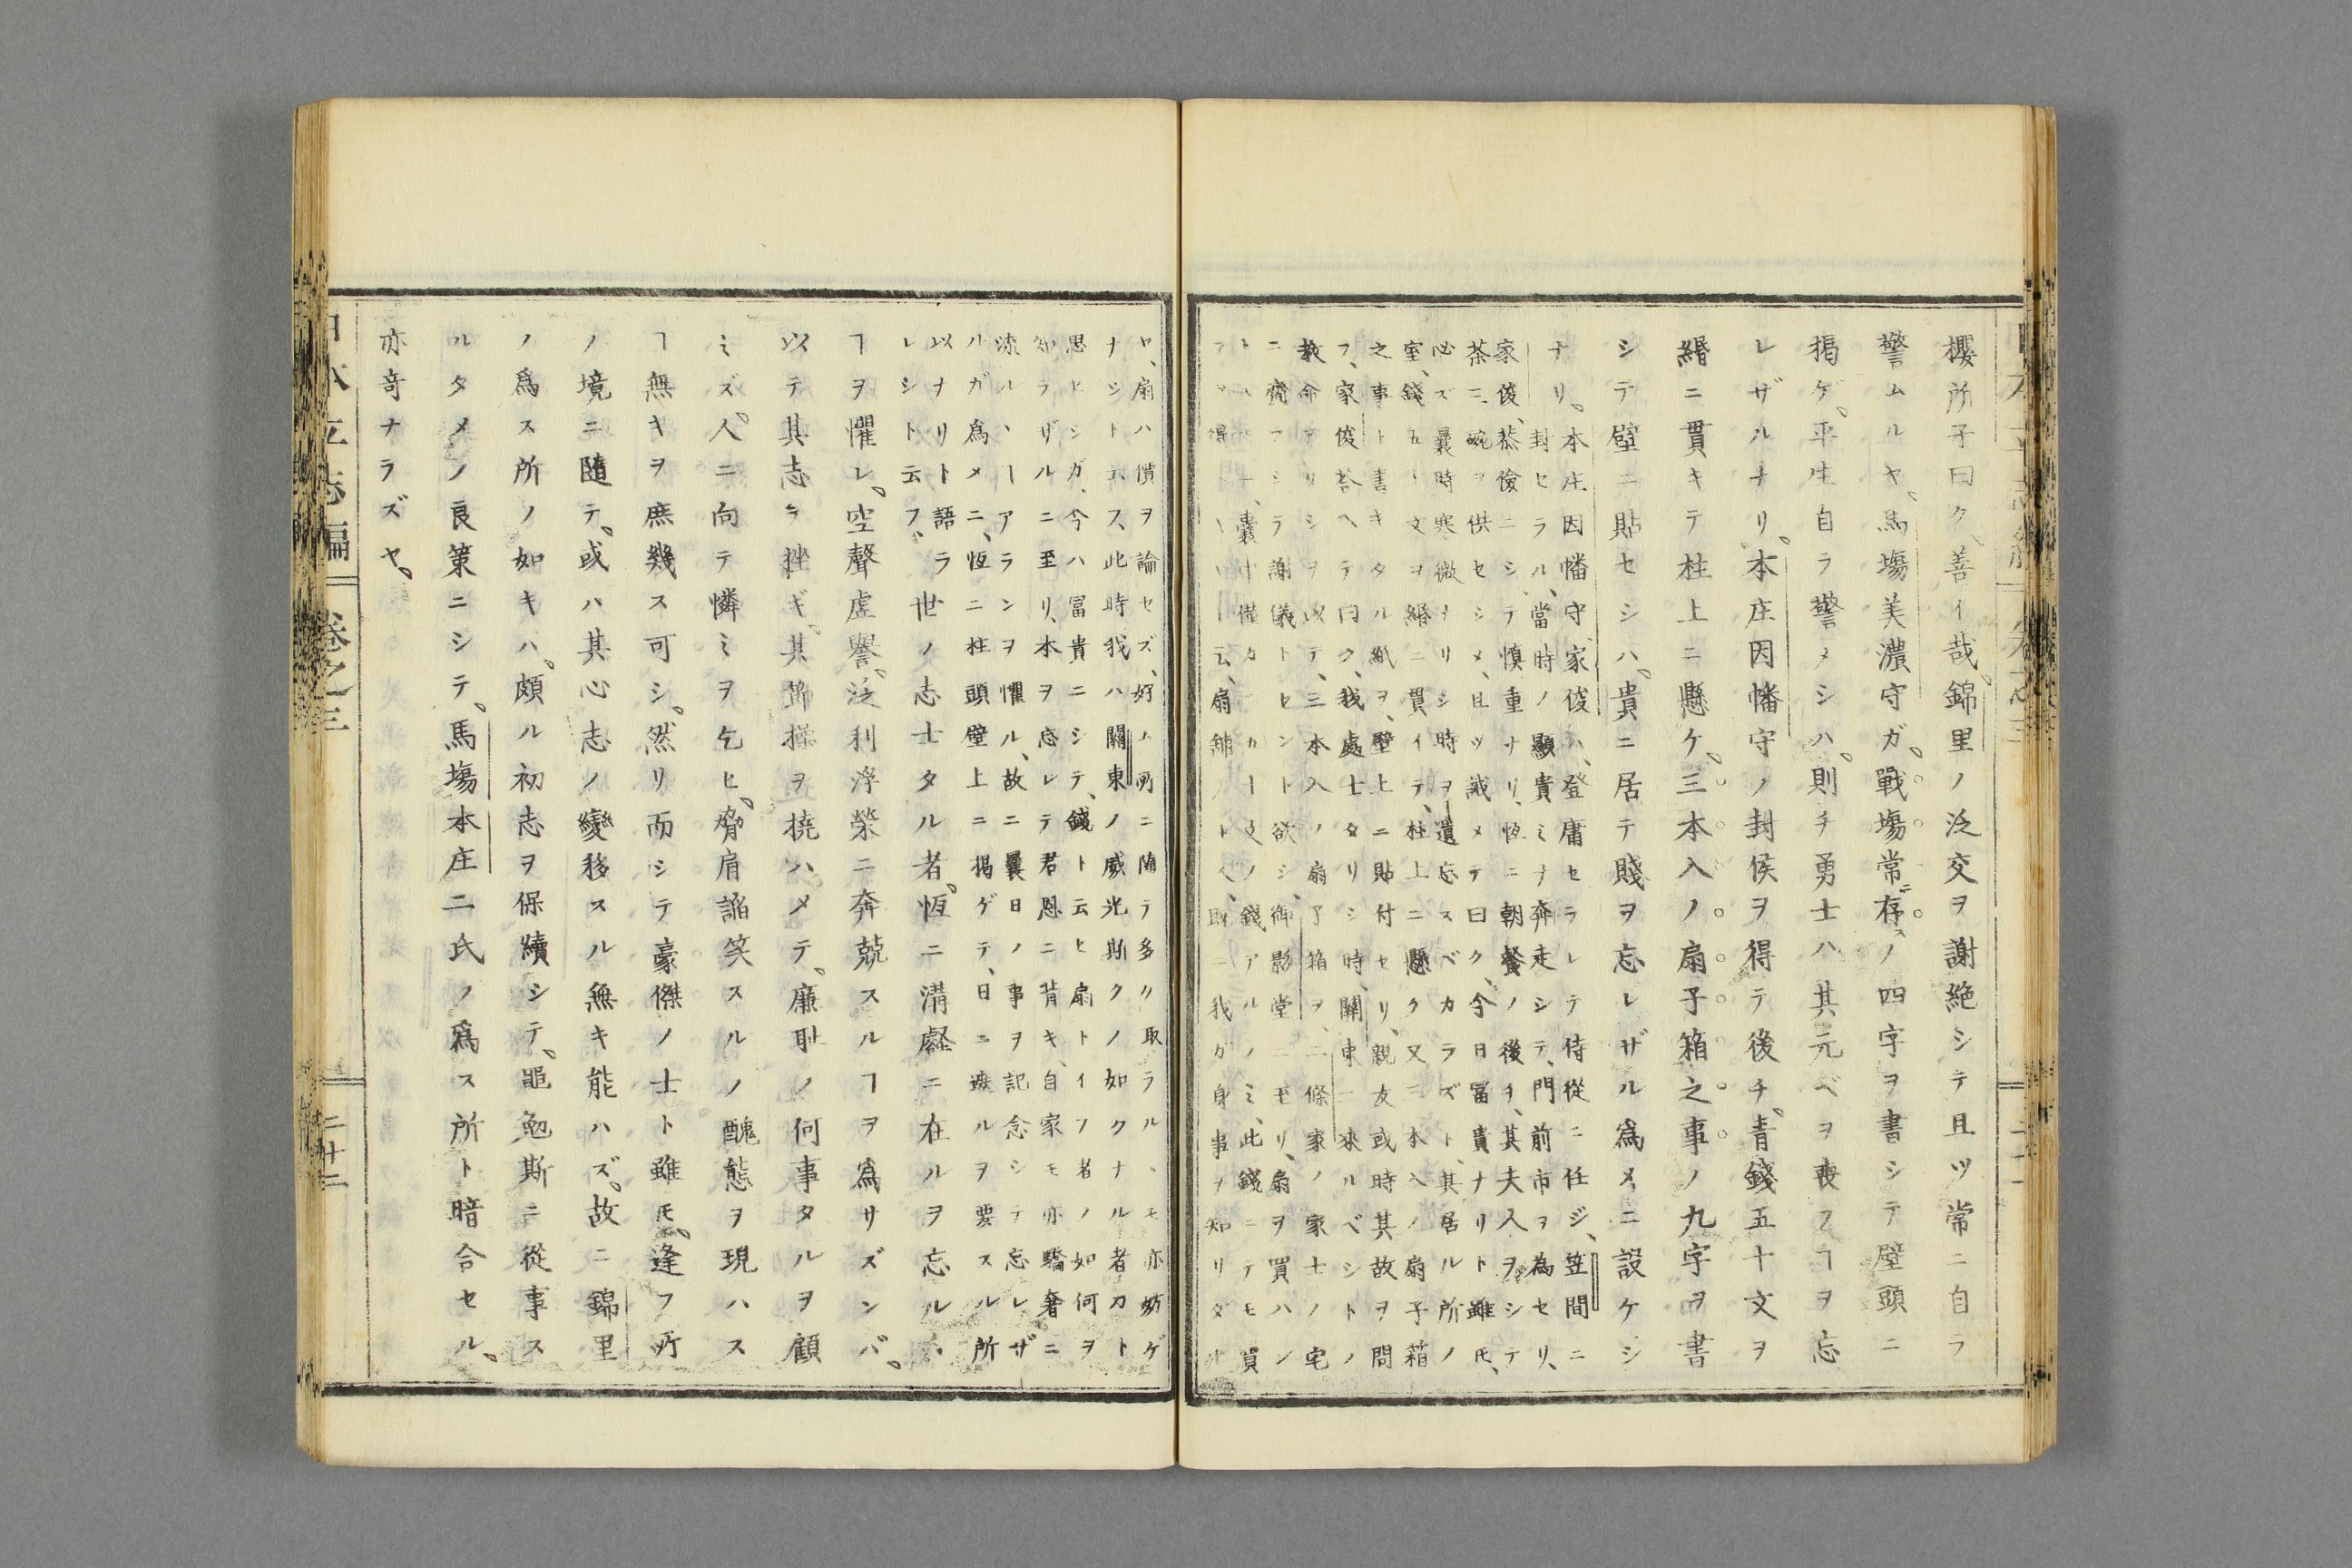 櫻所子曰ク、善イ哉、錦里ノ泛交ヲ謝絶シテ且ツ常ニ自ラ
警ムルヤ、馬塲美濃守ガ、戰塲常ニ存スノ四字ヲ書シテ壁頭ニ
掲ゲ、平生自ラ警メシハ、則チ勇士ハ其元ベヲ喪フヿヲ忘
レザルナリ、本庄因幡守ノ封侯ヲ得テ後チ、青錢五十文ヲ
緡ニ貫キテ柱上ニ懸ケ、三本入ノ扇子箱之事ノ九字ヲ書
シテ壁ニ貼セシハ、貴ニ居テ賤ヲ忘レザル爲メニ設ケシ
ナリ、
本庄因幡守家俊ハ、登庸セラレテ侍從ニ任ジ、笠間ニ
封セラル、當時ノ顯貴ミナ奔走シテ、門前市ヲ為セリ、
家俊、恭儉ニシテ慎重ナリ、恆ニ朝餐ノ後チ、其夫人ヲシテ
茶三碗ヲ供セシメ、且ツ誡メテ曰ク、今日冨貴ナリト雖モ、
必ズ曩時寒微ヲリシ時ヲ遺忘スベカラズト、其居ル所ノ
室、錢五十文ヲ緡ニ貫イテ、柱上ニ懸ク又三本入ノ扇子箱
之事ト書キタル紙ヲ、壁上ニ貼付セリ、親友或時其故ヲ問
フ、家俊答ヘテ曰ク、我處士タリシ時、關東ニ來ルベシトノ
教命アリシヲ以テ、三本入ノ扇子箱ヲ、二條家ノ家士ノ宅
ニ齎ラシテ謝儀トセント欲シ、御影堂ニ至リ、扇ヲ買ハン
得 囊中僅カ 錢アルノミ、此錢ニテモ買
云、扇舖 取ニ我ガ身事ヲ知リタル
ヤ、扇ハ價ヲ論セズ、好ノ所ニ随テ多ク取ラル、モ亦妨ゲ
ナシト云フ、此時我ハ關東ノ威光斯クノ如クナル者カト
思ヒシガ、今ハ冨貴ニシテ、錢ト云ヒ扇トイフ者ノ如何ヲ
知ラザルニ至リ、本ヲ忘レテ君恩ニ背キ、自家モ亦驕奢ニ
流ルヽーアランヲ懼ル、故ニ曩日ノ事ヲ記念シテ忘レザ
ルガ爲メニ、恆ニ柱頭壁上ニ掲ゲテ、日ニ嫉ルヲ要スル所
以ナリト語ラ
レシト云フ、
世ノ志士タル者、恆ニ溝壑ニ在ルヲ忘ルヽ
ヿヲ懼レ、空聲虚譽、泛利浮榮ニ奔兢スルヿヲ爲サズンバ、
以テ其志ヲ挫ギ、其節操ヲ撓ハメテ、廉耻ノ何事タルヲ顧
ミズ、人ニ向テ憐ミヲ乞ヒ、脅肩謟笑スルノ醜態ヲ現ハス
ヿ無キヲ庶幾ス可シ、然リ而シテ豪傑ノ士ト雖モ、逢フ所
ノ境ニ随テ、或ハ其心志ノ變移スル無キ能ハズ、故ニ錦里
ノ爲ス所ノ如キハ、頗ル初志ヲ保續シテ、黽勉斯ニ從事ス
ルタメノ良策ニシテ、馬塲本庄二氏ノ爲ス所ト暗合セル、
亦奇ナラズヤ、
日本立志編 卷之三 二十二